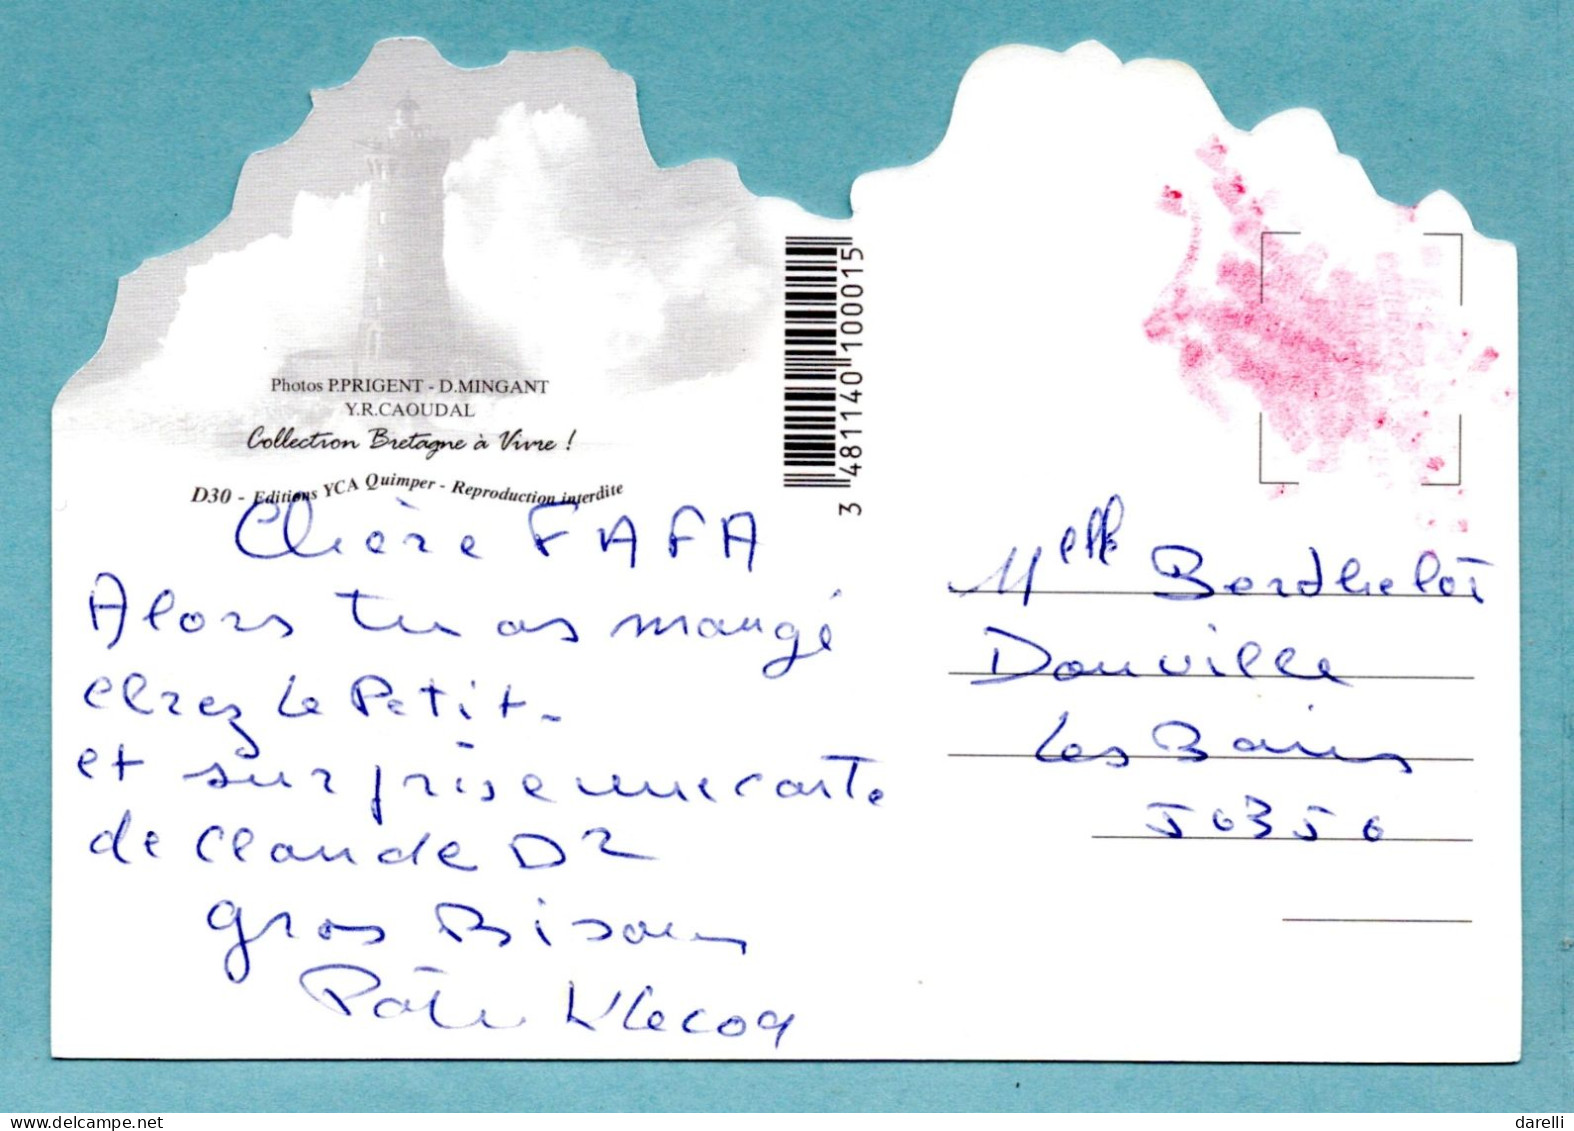 Photos P.PRIGENT - D.MINGANT
Y.R.CAOUDAL
Collection Bretagne à Vivre !
D30 - Editions YCA Quimper - Reproduction interdite
3 481140 100015
Chère FAFA
Alors tu as mangé
chez Le Petit -
et surprise une carte
de Claude D2
gros Bisous
Lecoq
Melle Berdhelot
Donville
Les Bains
50350
darelli